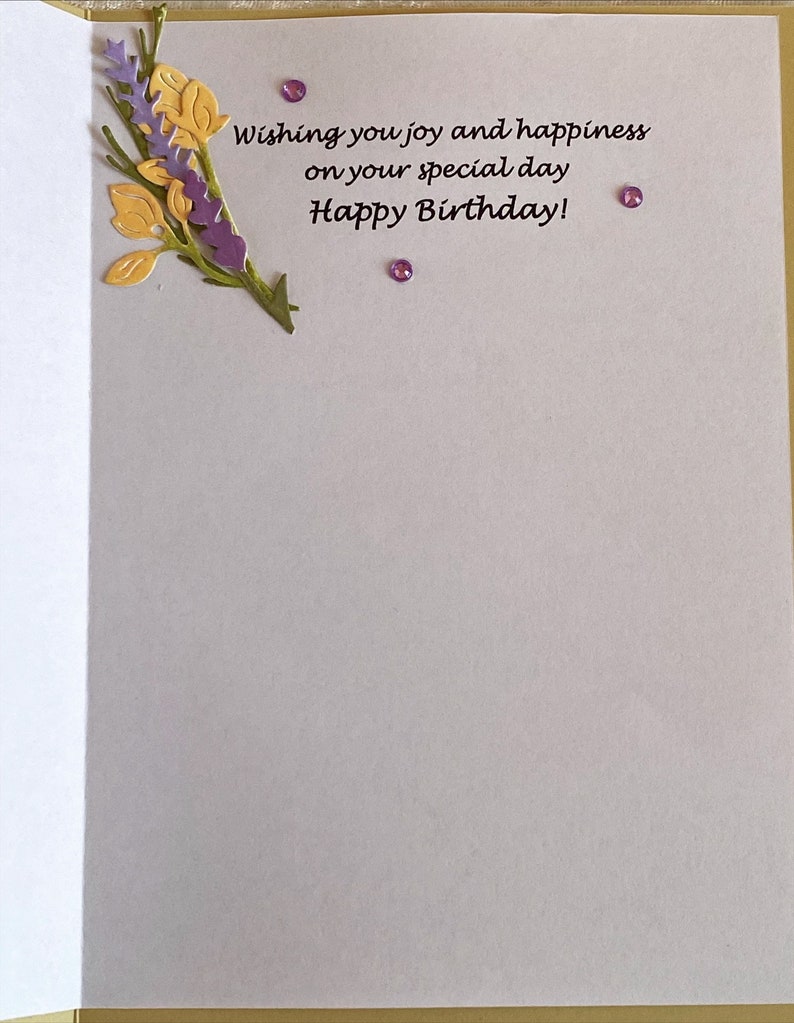 Wishing you joy and happiness
on your special day
Happy Birthday!